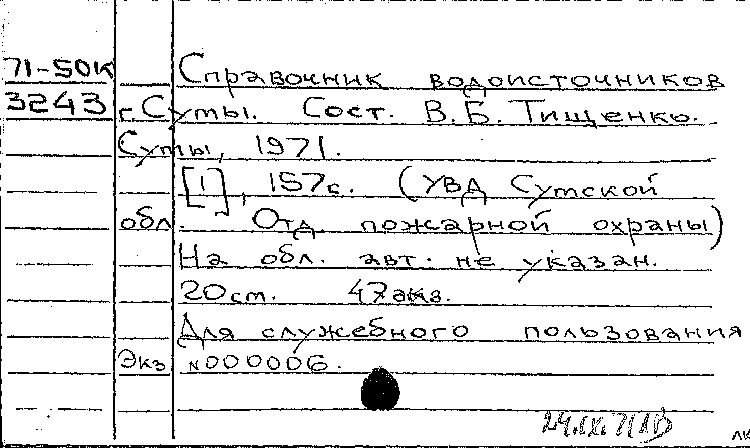 71-50К Справочник водоисточников
3243 г. Суты. Сост. В.Б. Тищенко.
Суты, 1971.
[1], 157с. (УВД Сутской
обл. Отд. пожарной охраны)
На обл. авт. не указан.
20 см. 47 экз.
Для служебного пользования
Экз №000006.
24.IX.71
лк